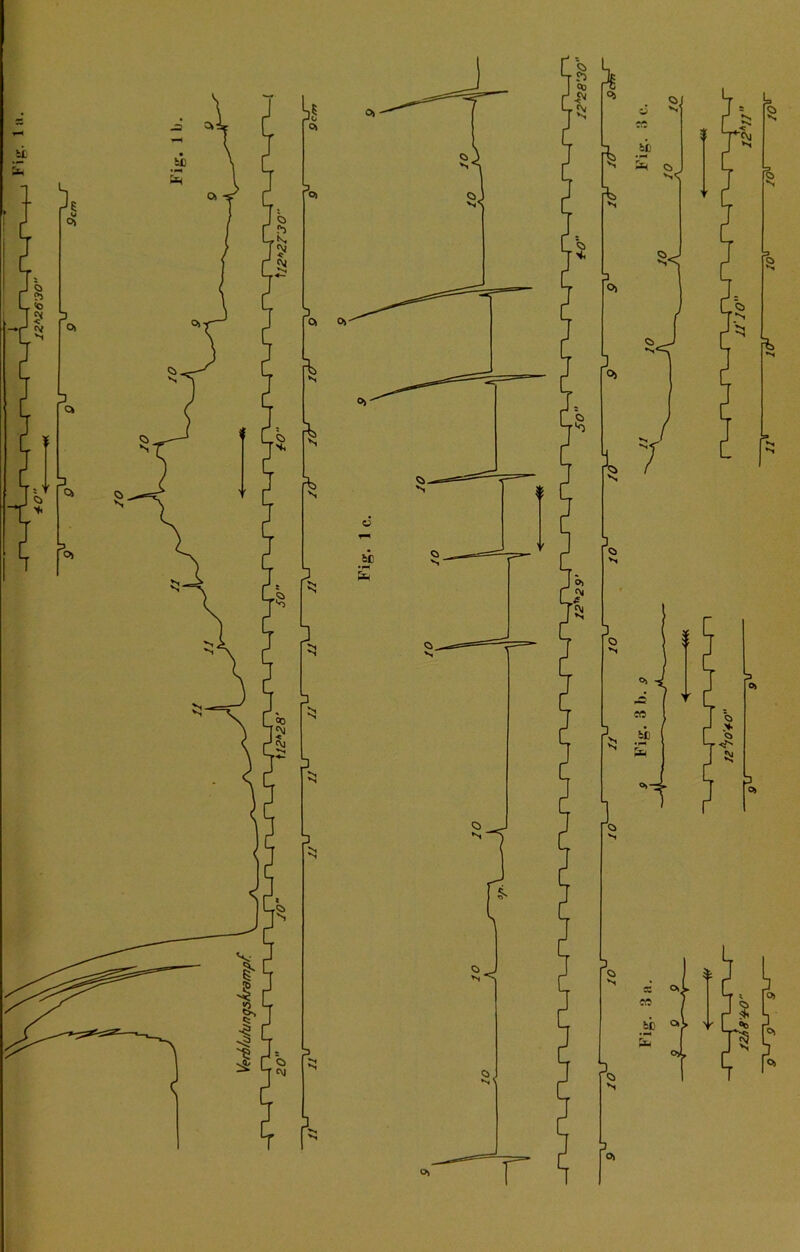 Fig. 1 a.
12ʰ26'30"
40"
9cm
9
9
9
9
Fig. 1 b.
9
9
9
10
10
10
11
11
11
Verblutungskrampf.
12ʰ27'30"
40"
50"
12ʰ28'
10"
20"
9cm
9
9
10
10
11
11
11
11
11
11
11
Fig. 1 c.
9
10
10
9
9
10
10
10
10
sp.
10
10
9
12ʰ28'30"
40"
50"
12ʰ29'
9cm
10
10
9
9
10
10
10
11
10
10
10
9
Fig. 3 c.
10
10
10
10
11
12ʰ11"
11'10"
10
10
10
10
11
Fig. 3 b.
9
9
12ʰ10'40"
9
9
Fig. 3 a.
9
9
9
12ʰ8'40"
9
9
9